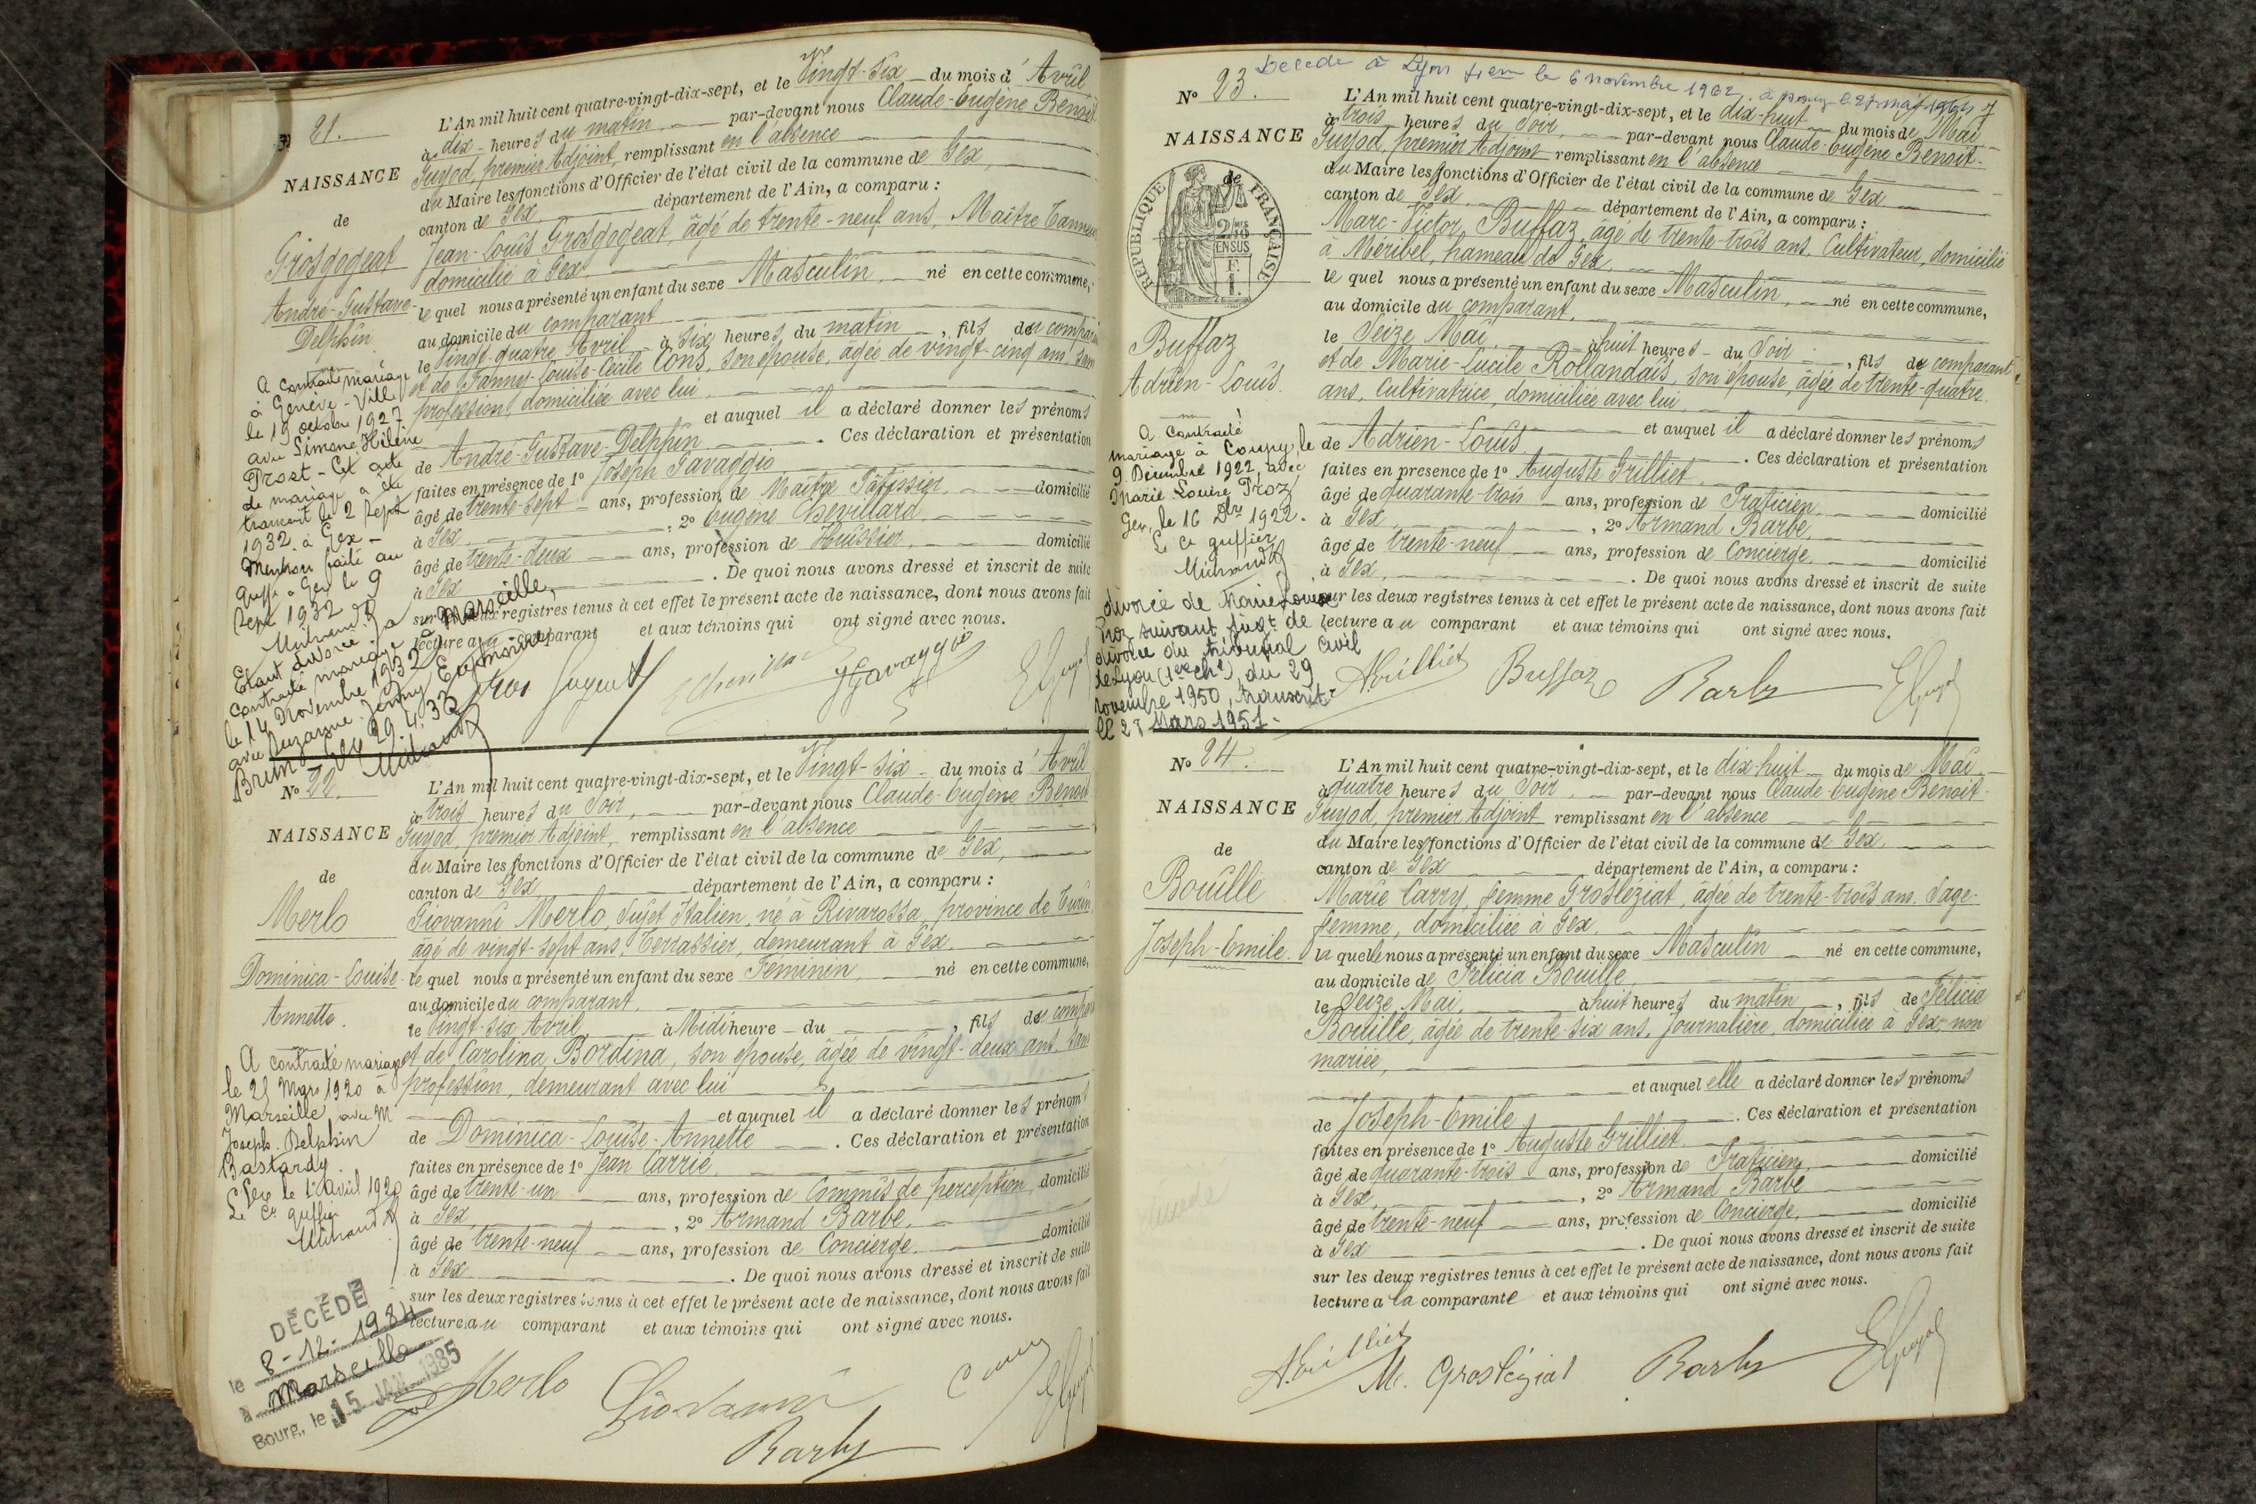 21.
NAISSANCE
de
Grosgogeat
André-Gustave-
Delphin
L'An mil huit cent quatre-vingt-dix-sept, et le Vingt-six du mois d'Avril
à dix heures du matin par-devant nous Claude-Eugène Benoit
premier Adjoint, remplissant en l'absence
du Maire les fonctions d'Officier de l'état civil de la commune de Gex,
canton de Gex département de l'Ain, a comparu :
Jean-Louis Grosgogeat, âgé de trente-neuf ans, Maître Tanneur
domicilié à Gex,
le quel nous a présenté un enfant du sexe Masculin, né en cette commune,
au domicile du comparant
le Vingt-quatre Avril à six heures du matin, fils du
et de Fanny-Louise-Cécile Cons, son épouse, âgée de vingt-cinq ans, sans
profession, domiciliée avec lui,
et auquel il a déclaré donner les prénoms
de André-Gustave-Delphin. Ces déclaration et présentation
faites en présence de 1º Joseph Favaggio
âgé de trente-sept ans, profession de Maître Pâtissier, domicilié
à Gex, 2º Eugène Chevillard,
âgé de trente-deux ans, profession de Huissier, domicilié
à Gex. De quoi nous avons dressé et inscrit de suite
sur les deux registres tenus à cet effet le présent acte de naissance, dont nous avons fait
lecture au comparant et aux témoins qui ont signé avec nous.
A contracté mariage
à Genève-Ville
le 19 octobre 1927
avec Simone Hélène
Prost - Cet acte
de mariage a été
transcrit le 2 Sept
1932 à Gex -
Mention faite au
greffe à Gex le 9
Sept 1932
Etant divorcé, a
contracté mariage à Marseille,
le 14 Novembre 1932
avec Suzanne Jenny
Brun 29.4.33
Nº 22.
NAISSANCE
de
Merlo
Dominica-Louise-
Annette.
L'An mil huit cent quatre-vingt-dix-sept, et le Vingt-six du mois d'Avril
à trois heures du Soir, par-devant nous Claude-Eugène Benoit
premier Adjoint, remplissant en l'absence
du Maire les fonctions d'Officier de l'état civil de la commune de Gex,
canton de Gex département de l'Ain, a comparu :
Giovanni Merlo, Sujet Italien, né à Rivarossa, province de Turin
âgé de vingt-sept ans, Terrassier, demeurant à Gex,
le quel nous a présenté un enfant du sexe Féminin né en cette commune,
au domicile du comparant,
le Vingt-six Avril, à Midi heure du , fils du
et de Carolina Bordina, son épouse, âgée de vingt-deux ans, sans
profession, demeurant avec lui
et auquel il a déclaré donner les prénoms
de Dominica-Louise-Annette. Ces déclaration et présentation
faites en présence de 1º Jean Carrié,
âgé de trente-un ans, profession de Commis de perception, domicilié
à Gex, 2º Armand Barbe,
âgé de trente-neuf ans, profession de Concierge, domicilié
à Gex. De quoi nous avons dressé et inscrit de suite
sur les deux registres tenus à cet effet le présent acte de naissance, dont nous avons fait
lecture au comparant et aux témoins qui ont signé avec nous.
A contracté mariage
le 25 Mars 1920 à
Marseille avec M
Joseph-Delphin
Bastardy.
Gex le 1er avril 1920
Le Cis greffier
DÉCÉDÉE
le 8-12-1984
à Marseille
Bourg, le 15 JAN. 1985
Merlo Giovanni
Barbe
Decede à Lyon le 6 novembre 1962.
Nº 23.
NAISSANCE
de
REPUBLIQUE FRANÇAISE
Buffaz
Adrien-Louis.
L'An mil huit cent quatre-vingt-dix-sept, et le dix-huit du mois de Mai
à trois heures du Soir, par-devant nous Claude-Eugène Benoit-
premier Adjoint remplissant en l'absence
du Maire les fonctions d'Officier de l'état civil de la commune de Gex
canton de Gex, département de l'Ain, a comparu :
Marc-Victor Buffaz, âgé de trente-trois ans, Cultivateur, domicilié
à Méribel, hameau de Gex,
le quel nous a présenté un enfant du sexe Masculin, né en cette commune,
au domicile du comparant,
le Seize Mai, à huit heures du Soir, fils du comparant
et de Marie-Lucile Rollandais, son épouse, âgée de trente-quatre
ans, Cultivatrice, domiciliée avec lui,
et auquel il a déclaré donner les prénoms
de Adrien-Louis. Ces déclaration et présentation
faites en présence de 1º Auguste Grilliet,
âgé de quarante-trois ans, profession de Praticien, domicilié
à Gex, 2º Armand Barbe,
âgé de trente-neuf ans, profession de Concierge, domicilié
à Gex. De quoi nous avons dressé et inscrit de suite
sur les deux registres tenus à cet effet le présent acte de naissance, dont nous avons fait
lecture au comparant et aux témoins qui ont signé avec nous.
A contracté
mariage à Coupy, le
9 Décembre 1922, avec
Marie Louise Proz
Gex, le 16 Dbre 1922.
Le Cis greffier
divorcé de Marie Louise
Proz suivant jugt de
divorce du tribunal civil
de Lyon (1ère che) du 29
novembre 1950, transcrit
le 27 Mars 1951.
AGrilliet Buffaz Barbe
Nº 24.
NAISSANCE
de
Bouille
Joseph-Emile.
L'An mil huit cent quatre-vingt-dix-sept, et le dix-huit du mois de Mai
à quatre heures du Soir, par-devant nous Claude-Eugène Benoit-
premier Adjoint remplissant en l'absence
du Maire les fonctions d'Officier de l'état civil de la commune de Gex,
canton de Gex département de l'Ain, a comparu :
Marie Carry, femme Grosléziat, âgée de trente-trois ans, Sage-
femme, domiciliée à Gex,
la quelle nous a présenté un enfant du sexe Masculin né en cette commune,
au domicile de Félicia Bouille
le Seize Mai, à huit heures du matin, fils de Félicia
Bouille, âgée de trente-six ans, Journalière, domiciliée à Gex, non
mariée,
et auquel elle a déclaré donner les prénoms
de Joseph-Emile. Ces déclaration et présentation
faites en présence de 1º Auguste Grilliet
âgé de quarante-trois ans, profession de Praticien, domicilié
à Gex, 2º Armand Barbe
âgé de trente-neuf ans, profession de Concierge, domicilié
à Gex. De quoi nous avons dressé et inscrit de suite
sur les deux registres tenus à cet effet le présent acte de naissance, dont nous avons fait
lecture a la comparante et aux témoins qui ont signé avec nous.
AGrilliet M. Grosléziat Barbe